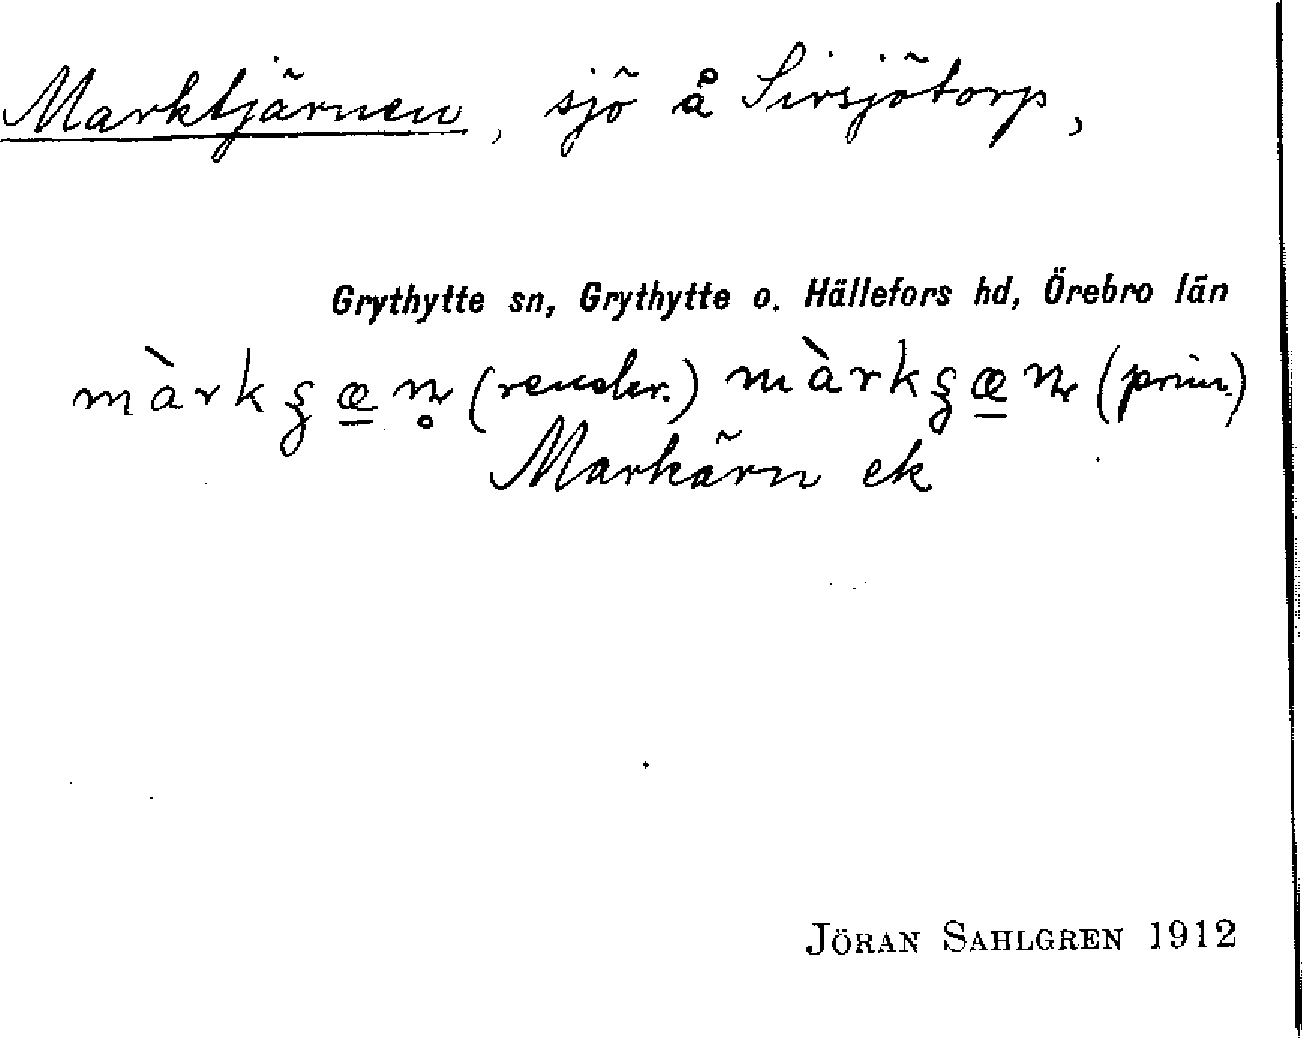 Marktjärnen, sjö å Sirsjötorp,
Grythytte sn, Grythytte o. Hällefors hd, Örebro län
màrkʒæ̠n̥ (render.) màrkʒæ̠n (prim.)
Markärn ek
JÖRAN SAHLGREN 1912